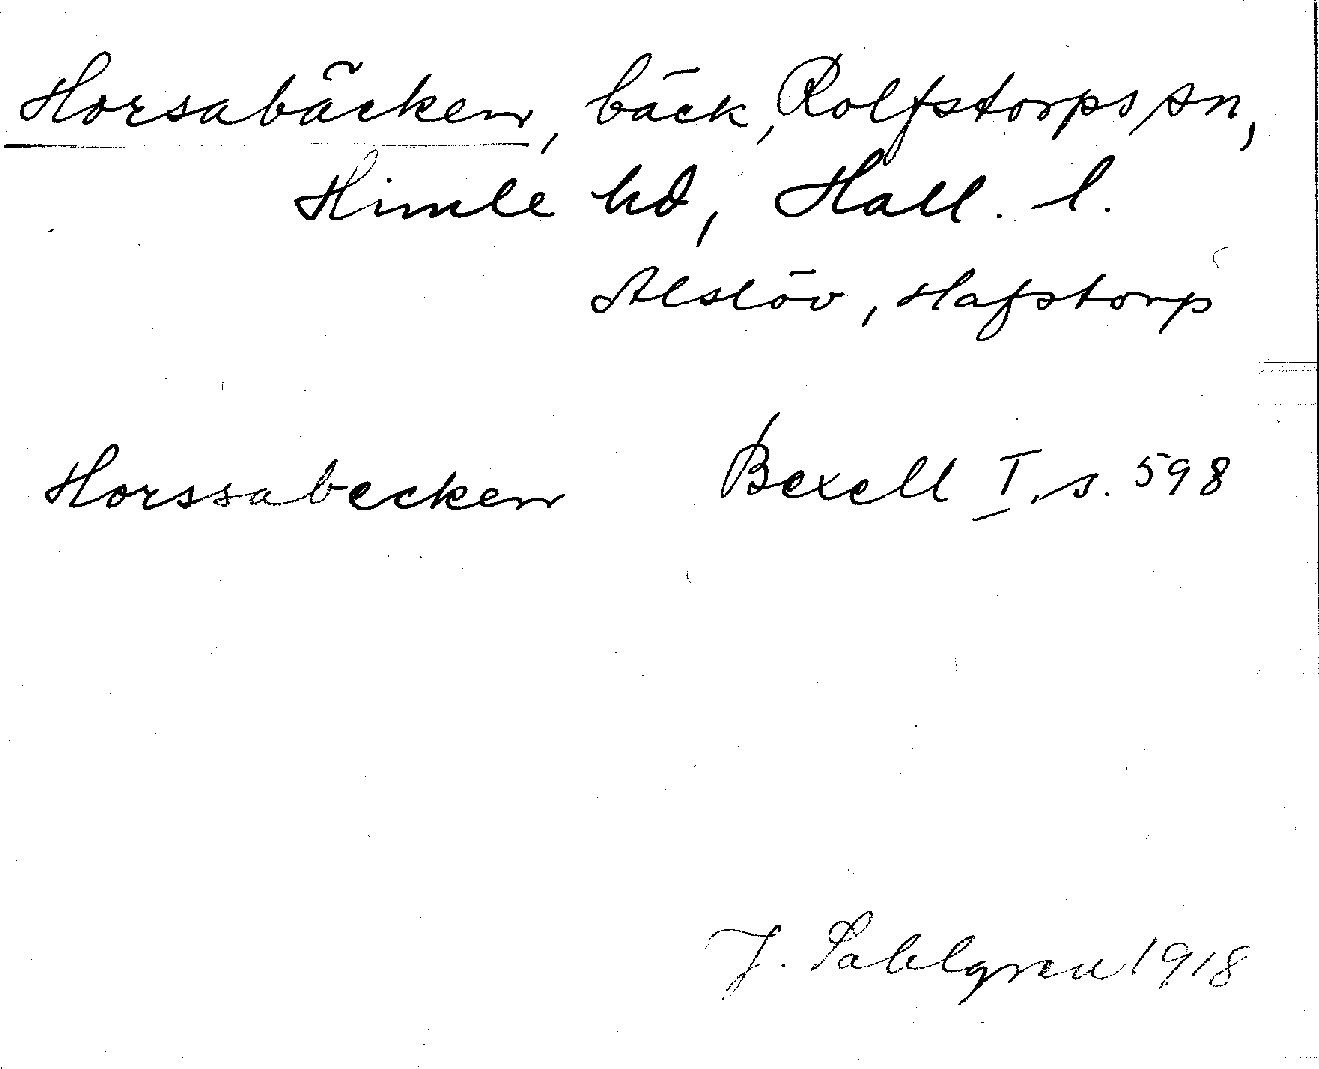 Horsabäcken, bäck, Rolfstorps sn,
Himle hd, Hall. l.
Alslöv, Hafstorp
Horssabecken Bexell I, s. 598
J. Sahlgren 1918